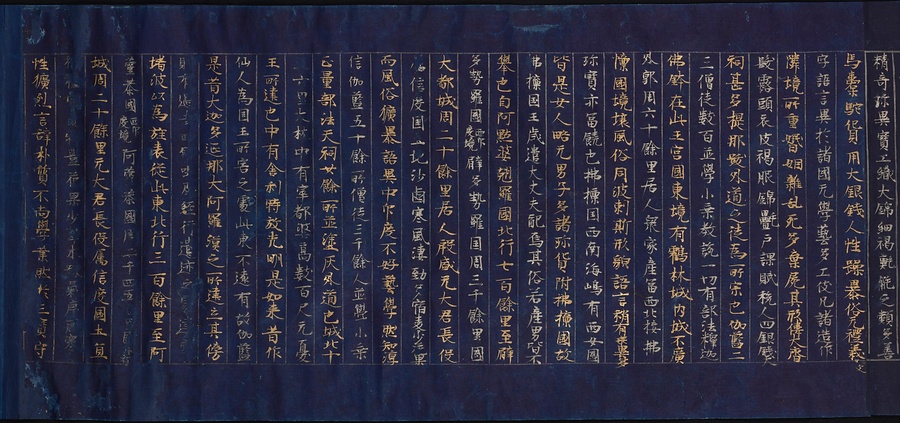 精奇珎異寶工織大錦細褐氎㲪之類多善
馬橐駝貨用大銀錢人性躁暴俗无禮義文
字語言異於諸國元學藝多工伎凡諸造作
隣境所重婚姻雜乱死多棄屍其形偉大齊
髮露頭衣皮褐服錦氎戶課賦稅人四銀錢
祠甚多提那跋外道之徒為所宗也伽藍二
三僧徒數百並學小乘教說一切有部法釋迦
佛鉢在此王宮國東境有鶴秣城內城不廣
外郭周六十餘里居人衆家產富西北接拂
懍國境壤風俗同波剌斯形貌語言稍有乖異多
珎寶亦富饒也拂懍国西南海嶋有西女国
皆是女人略元男子多諸珎貨附拂懍國故
拂懍国王歲遣大丈夫配焉其俗若產男皆不
舉也自阿點婆翅羅國北行七百餘里至臂
多勢羅國西印度境臂多勢羅国周三千餘里國
大都城周二十餘里居人殷盛元大君長役
信度国土地沙鹵寒風凄勁多宿麥少花果
而風俗獷暴語異中印度不好藝學然知淳
信伽藍五十餘所僧徒三千餘人並學小乘
正量部法天祠廿餘所並塗灰外道也城北十
六里大林中有窣都波高數百尺元憂
王所建也中有舍利時放光明是如來昔作
仙人為国王所害之處此東不遠有故伽藍
是昔大迦多延那大阿羅漢之所建立其傍
經行遺迹之
堵波以為旌表從此東北行三百餘里至阿
荼國西印度境阿荼國周二千四五百里
城周二十餘里元大君長役屬信度國土宜
性獷烈言辭朴質不尚學業然於三寶守